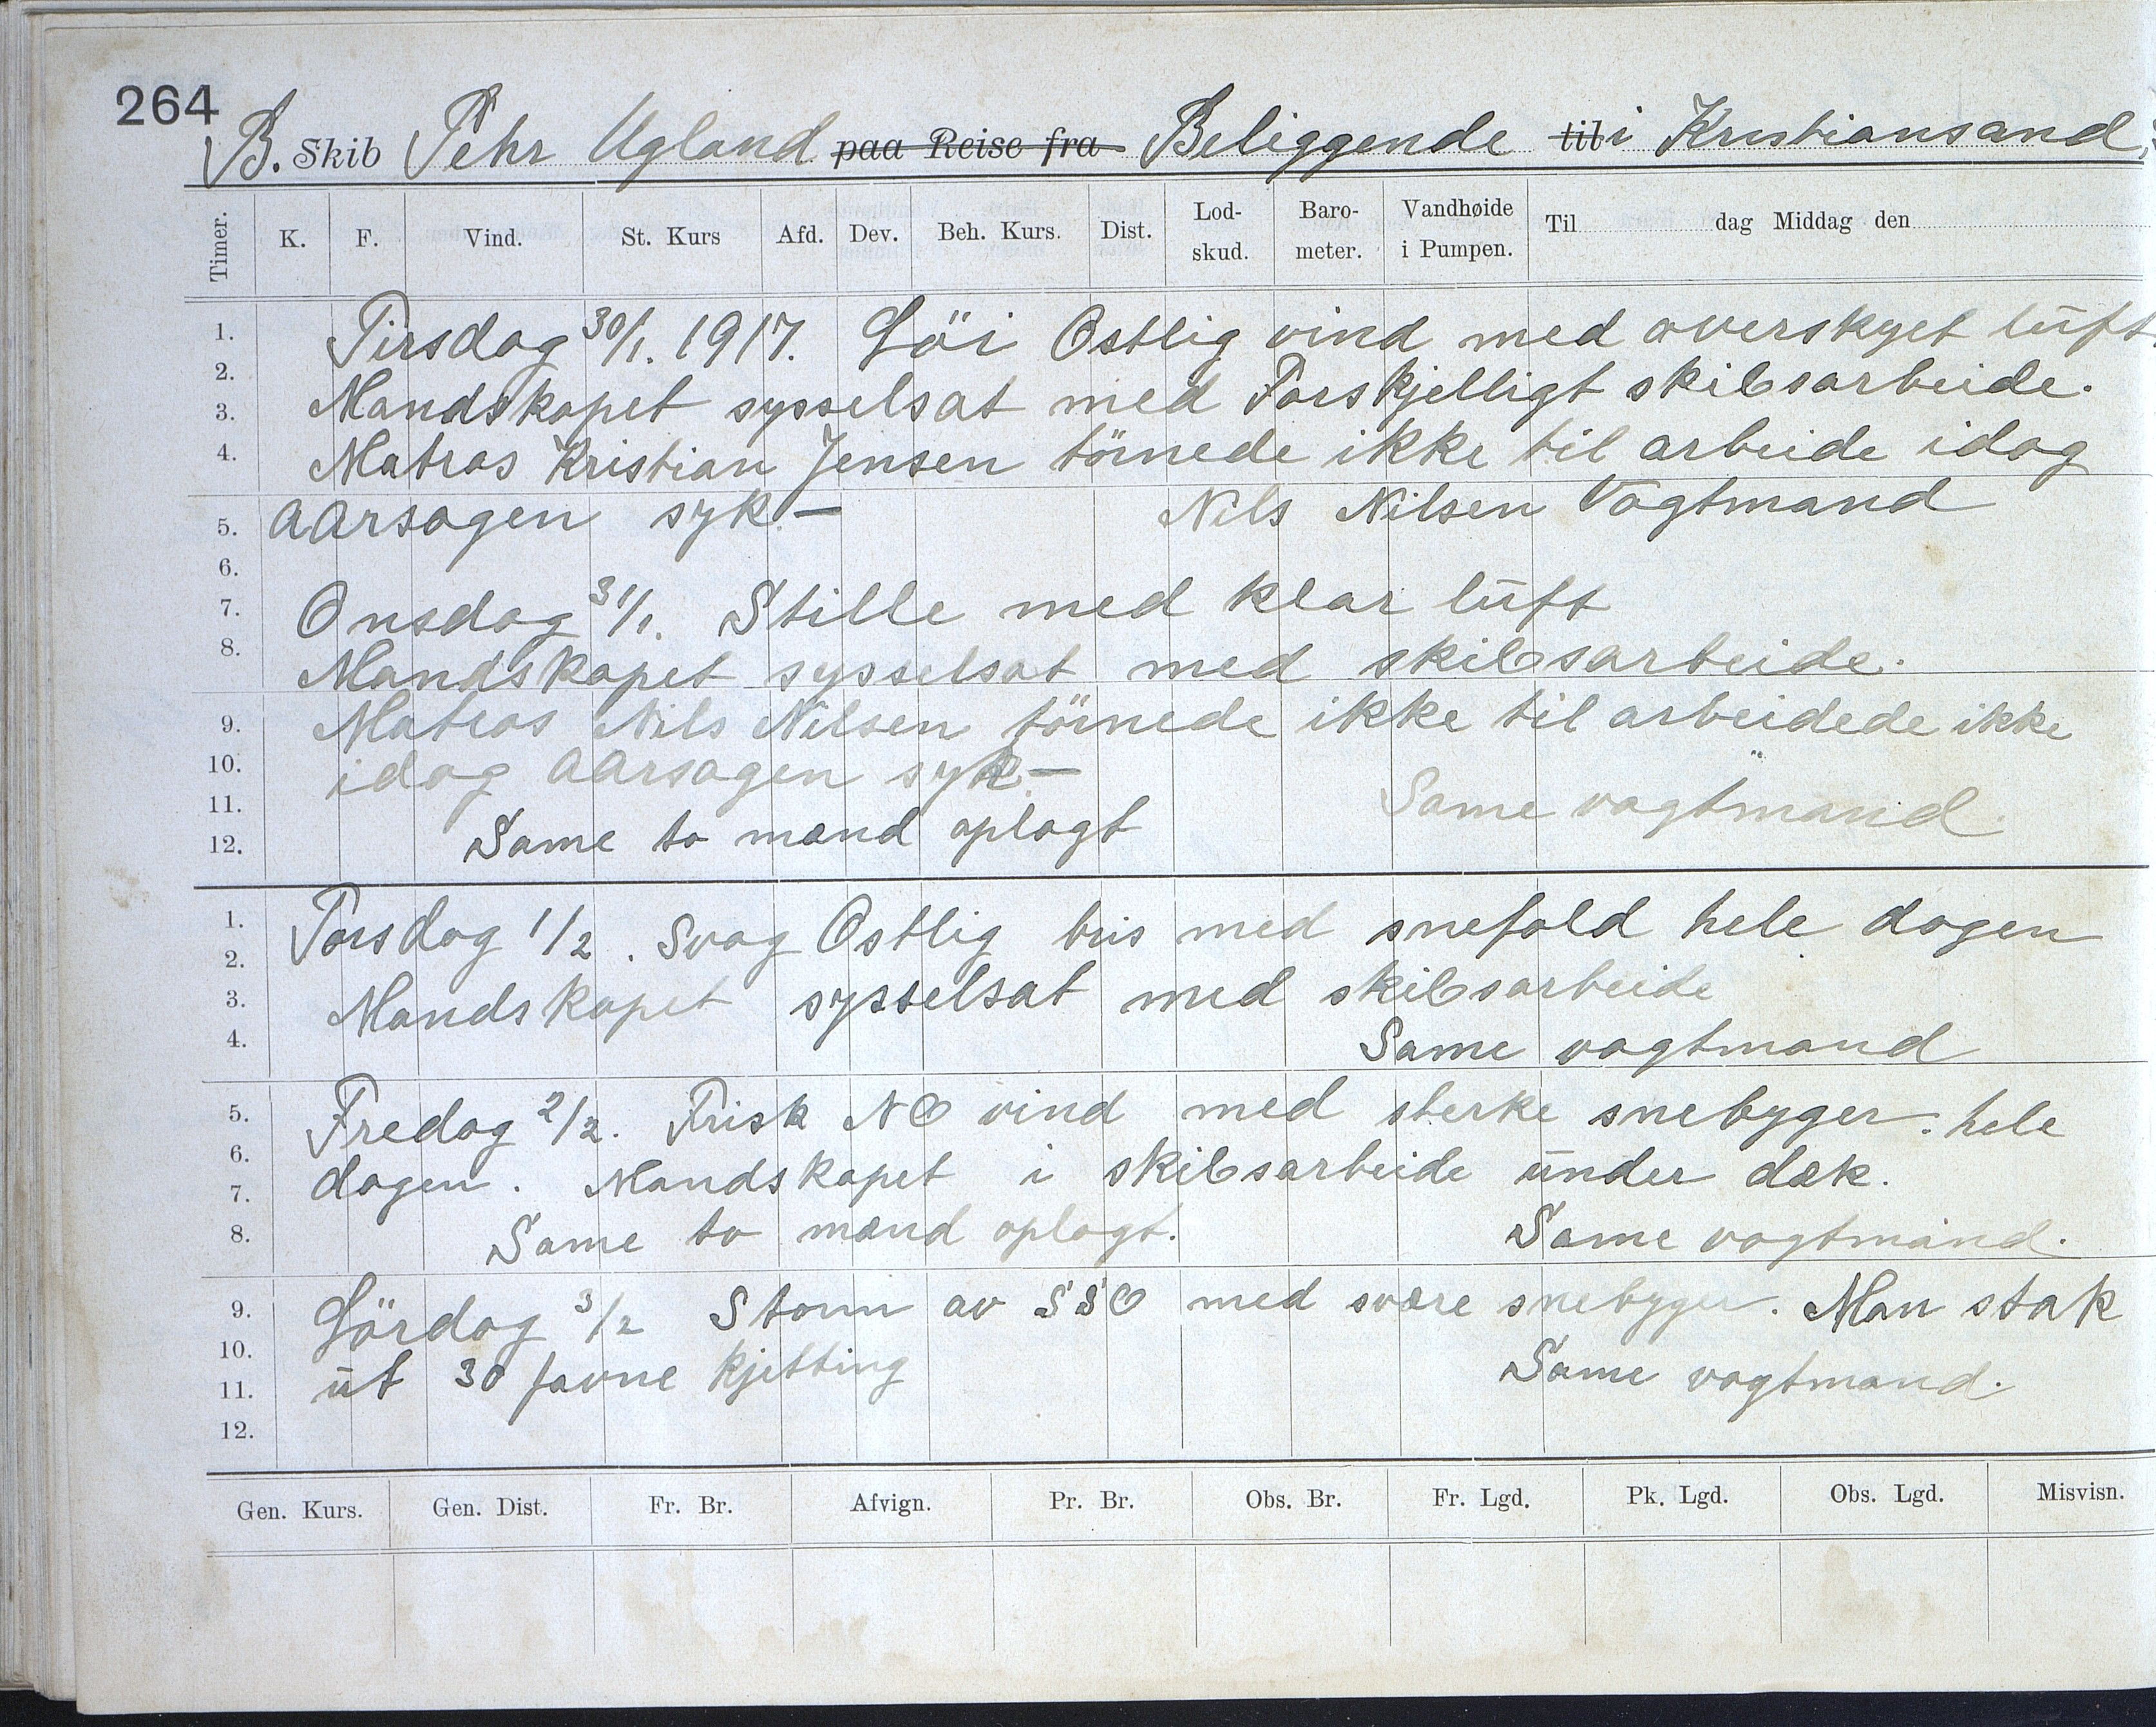 264
B. Skib Pehr Ugland paa Reise fra Beliggende til i Kristiansand,
Timer. K. F. Vind. St. Kurs Afd. Dev. Beh. Kurs. Dist. Lod-skud. Baro-meter. Vandhøide i Pumpen. Til dag Middag den
1. Tirsdag 30/1. 1917. Löi Ostlig vind med overskyet luft.
2.
3. Mandskapet sysselsat med Forskjelligt skibsarbeide.
4. Matros Kristian Jensen törnede ikke til arbeide idag
5. aarsagen syk.— Nils Nilsen Vagtmand
6.
7. Onsdag 31/1. Stille med klar luft
8. Mandskapet sysselsat med skibsarbeide.
9. Matros Nils Nilsen törnede ikke til arbeidede ikke
10. idag aarsagen syk.—
11. Same vagtmand.
12. Same to mand oplagt
1. Torsdag 1/2. Svag Ostlig bris med snefald hele dagen
2.
3. Mandskapet sysselsat med skibsarbeide
4. Same vagtmand
5. Fredag 2/2. Frisk NO vind med sterke snebyger. hele
6.
7. dagen. Mandskapet i skibsarbeide under dæk.
8. Same to mand oplagt. Same vagtmand.
9. Lördag 3/2 Storm av SSO med svære snebyger. Man stak
10.
11. ut 30 favne kjetting Same vagtmand.
12.
Gen. Kurs. Gen. Dist. Fr. Br. Afvign. Pr. Br. Obs. Br. Fr. Lgd. Pk. Lgd. Obs. Lgd. Misvisn.